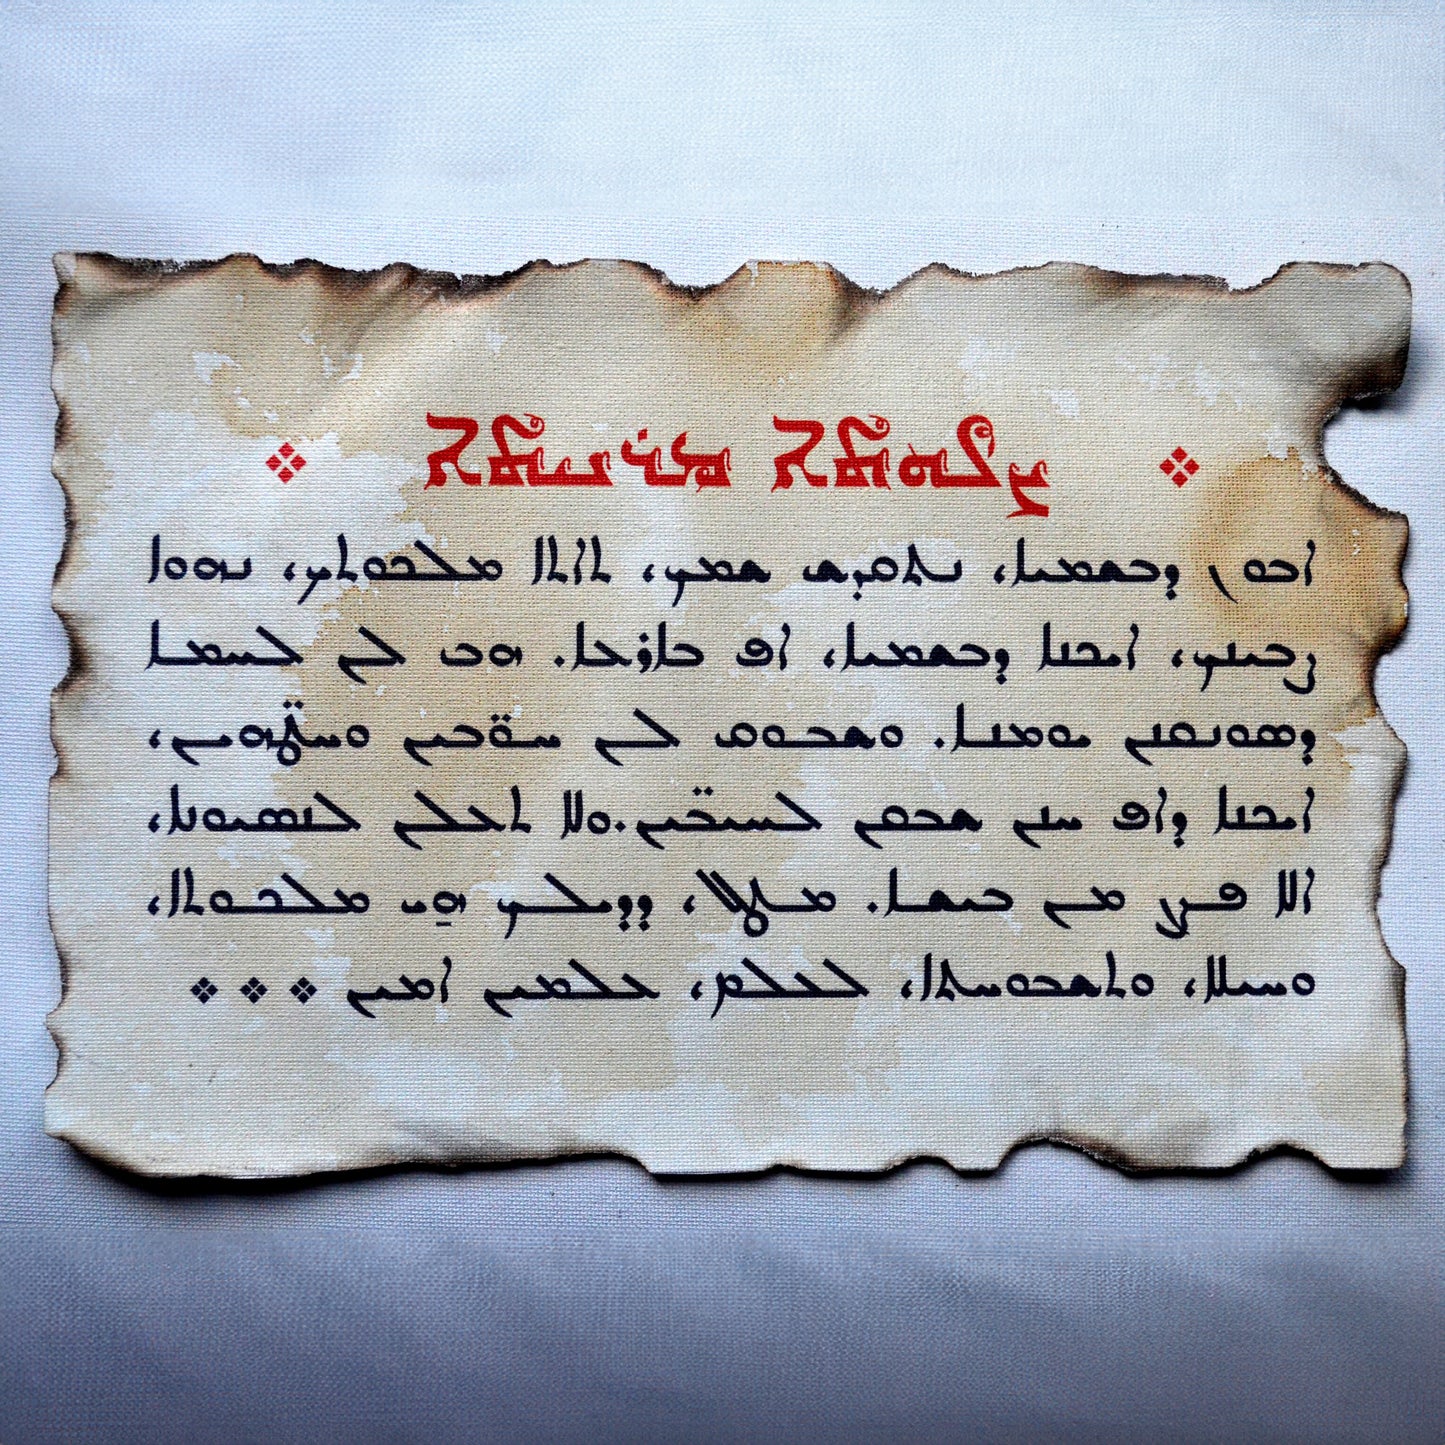 ܀ ܨܠܘܬܐ ܡܪܢܝܬܐ ܀
ܐܒܘܢ ܕܒܫܡܝܐ، ܢܬܩܕܫ ܫܡܟ، ܬܐܬܐ ܡܠܟܘܬܟ، ܢܗܘܐ
ܨܒܝܢܟ، ܐܝܟܢܐ ܕܒܫܡܝܐ، ܐܦ ܒܐܪܥܐ. ܗܒ ܠܢ ܠܚܡܐ
ܕܣܘܢܩܢܢ ܝܘܡܢܐ. ܘܫܒܘܩ ܠܢ ܚܘ̈ܒܝܢ ܘܚܛ̈ܗܝܢ،
ܐܝܟܢܐ ܕܐܦ ܚܢܢ ܫܒܩܢ ܠܚܝ̈ܒܝܢ.ܘܠܐ ܬܥܠܢ ܠܢܣܝܘܢܐ،
ܐܠܐ ܦܨܢ ܡܢ ܒܝܫܐ. ܡܛܠ، ܕܕܝܠܟ ܗ̱ܝ ܡܠܟܘܬܐ،
ܘܚܝܠܐ، ܘܬܫܒܘܚܬܐ، ܠܥܠܡ، ܥܠܡܝܢ ܐܡܝܢ ܀ ܀ ܀